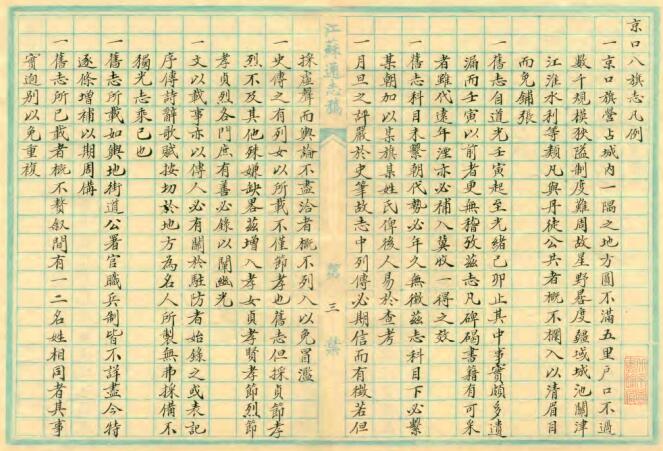 京口八旗志凡例
一京口旗營占城內一隅之地方圓不滿五里戶口不過
數千規模狹隘制度難周故星野晷度疆域城池關津
江淮水利等類凡與丹徒公共者概不攔入以清眉目
而免鋪張
一舊志自道光壬寅起至光緒己卯止其中事實頗多遺
漏而壬寅以前者更無稽攷茲志凡碑碣書籍有可采
者雖代遠年湮亦必補入冀收一得之效
一舊志科目未繫朝代勢必年久無徵茲志科目下必繫
某朝加以某旗某姓氏俾後人易於查考
一月旦之評嚴於史筆故志中列傳必期信而有徵若但
江蘇通志稿
第三葉
採虛聲而輿論不盡洽者概不列入以免冒濫
一史傳之有列女以所載不僅節孝也舊志但採貞節孝
烈不及其他殊嫌缺畧茲增入孝女貞孝賢孝節烈節
孝貞烈各門庶有善必錄以闡幽光
一文以載事亦以傳人必有關於駐防者始錄之或表記
序傳詩辭歌賦按切於地方為名人所製無弗採備不
獨光志乘已也
一舊志所載如輿地街道公署官職兵制皆不詳盡今特
逐條增補以期周備
一舊志所已載者概不贅敘間有一二名姓相同者其事
實迥別以免重複